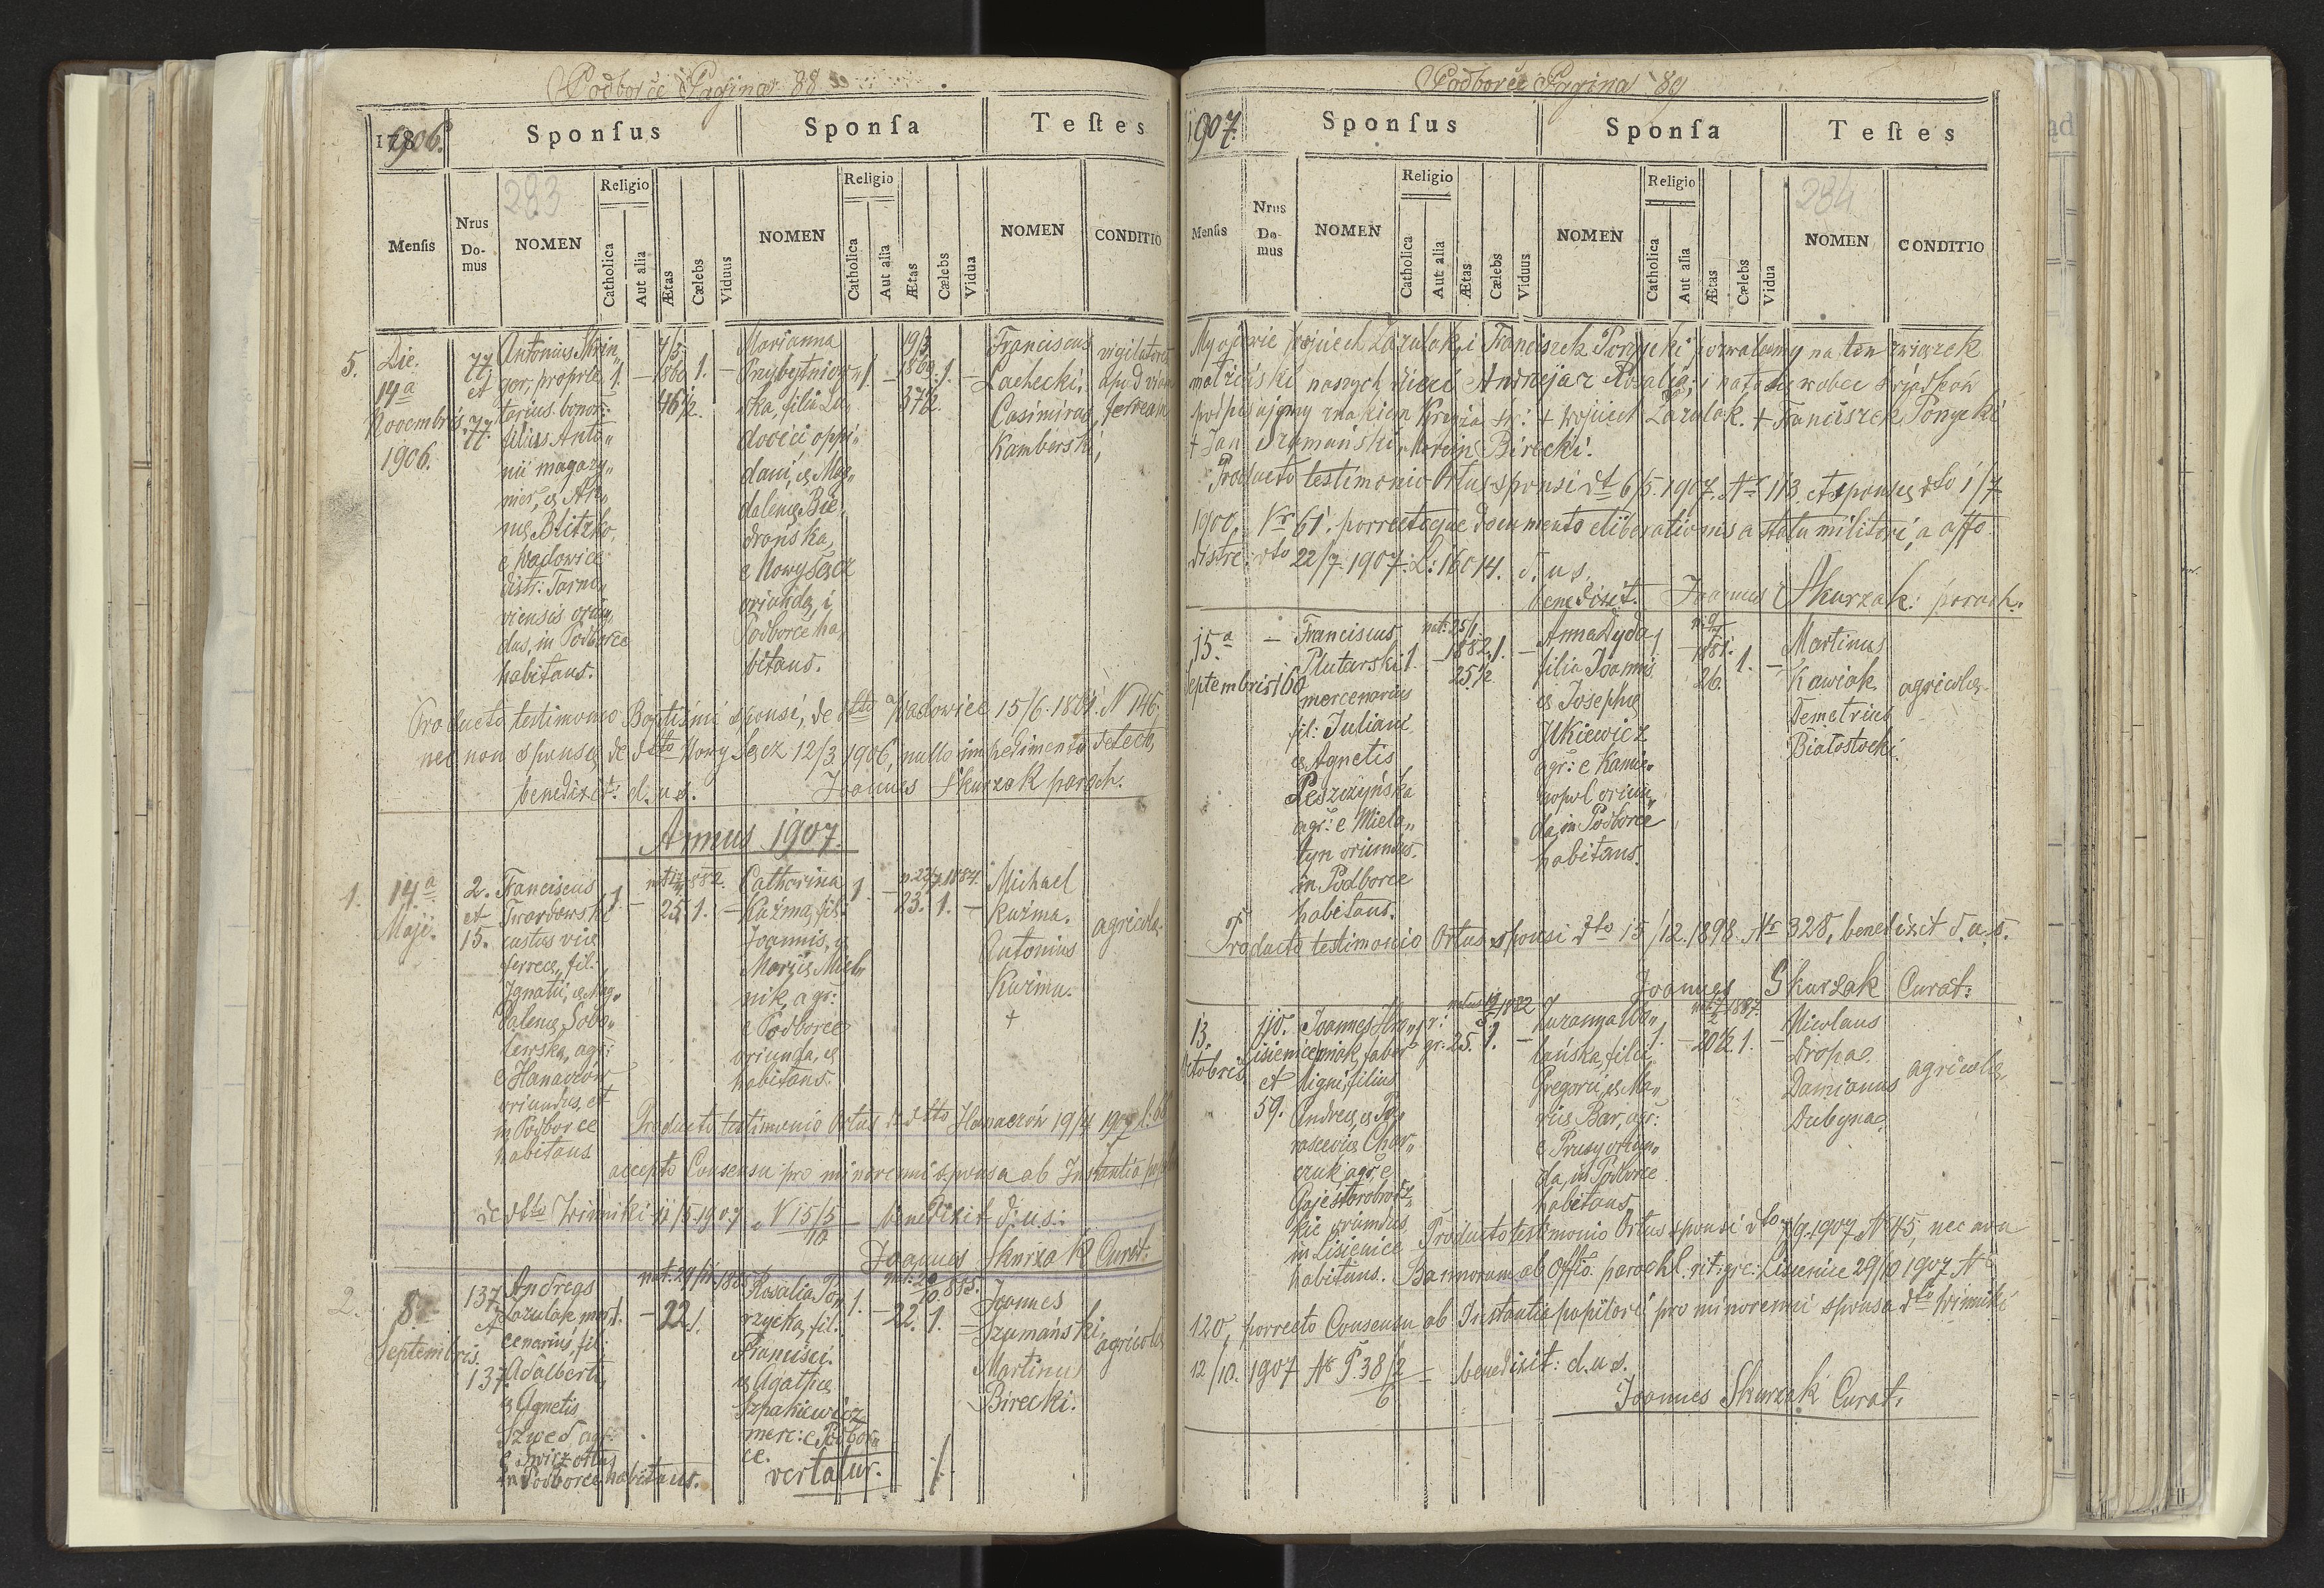 Podborce Pagina 88
1906.
Sponſus
Sponſa
Teſtes
Menſis
Nrus Domus
283
NOMEN
Religio
Catholica
Aut alia
Ætas
Cælebs
Viduus
NOMEN
Religio
Catholica
Aut alia
Ætas
Cælebs
Vidua
NOMEN
CONDITIO
5.
Die
14a
Novembris
1906.
77
et
77.
Antonius
ger, proprie„
tarius bonor:
filius Anto„
nii magazy„
nier, & An„
nae Blitzko,
e Wadowice
distr: Tarno„
viensis oriun„
dus, in Podborce
habitans.
1.
1860
46½.
1.
Marianna
Przybytniow„
ska, filia Lu„
dovici oppi„
dani, & Mag„
dalenae Bie„
drońska,
e Nowy Sącz
orianda, i
Podborce ha„
bitans.
1.
19/3
1869
37½.
1.
Franciscus
Lachecki,
Casimirus
Kamberski,
vigilatores
apud viam
ferream
Producto testimonio Baptismi sponsi, de dtto Wadowice 15/6. 1861. N 146.
nec non sponsae de dtto Nowy Sącz 12/3 1906, nullo impedimento detect,
benedixit: d. u. s. Joannes Skurzak paroch.
Annus 1907.
1.
14a
Maji.
2.
et
15.
Franciscus
Twardowski
custos viae
ferreae, fil.
Ignatii, & Mag„
dalenae Sobo„
lewska, agr:
e Hanaczów
oriundus, et
in Podborce
habitans
1.
25
1.
Catharina
Kuźma, fil.
Joannis, &
Mariae Miel„
nik, agr:
e Podborce
oriunda, &
habitans.
1.
n. 22/7. 1884.
23.
1.
Michael
Kuźma.
Antonius
Kuźma.
+
agricolae
Producto testimonio Ortus de dtto Hanaczów 19/4 1907
accepto Consensu pro minorenni sponsa ab Instantia
de dtto Winniki 11/5 1907, N 15/5/10 benedixit d. u. s.:
Joannes Skurzak Curat:
2.
8a
Septembris.
137
et
137.
Andreas
Łazulak mer„
cenarius, fil:
Adalberti,
& Agnetis
Szwed agr:
e Świrz ortus
in Podborce habitans.
1.
nat. 29/11. 1885
22
1.
Rosalia Po„
rzycka, fil.
Francisci.
& Agathae
Szpakiewicz
merc: e Podbor„
ce.
vertatur. ./.
1.
nat: 20/10. 885.
22.
1.
Joannes
Szumański,
Martinus
Birecki.
agricolae
Podborce Pagina 89
1907.
Sponſus
Sponſa
Teſtes
Menſis
Nrus Domus
NOMEN
Religio
Catholica
Aut alia
Ætas
Cælebs
Viduus
NOMEN
Religio
Catholica
Aut alia
Ætas
Cælebs
Vidua
284
NOMEN
CONDITIO
My ojcowie Wojciech Łazulak, i Franciszek Porzycki pozwalamy na ten związek
małżeński naszych dzieci Andrzeja z Rosalią, i na to się wobec świadków
podpisujemy znakiem Krzyża św: + Wojciech Łazulak. + Franciszek Porzycki
+ Jan Szumański, Marcin Birecki.
Producto testimonio Ortus sponsi dt 6/5. 1907. Nr 113. et sponsae dto 1/7
1900, Nr 61. porrectoque documento eliberationis a statu militari, a offo
distre: dto 22/7. 1907. L: 16014. d. u s.
benedixit. Joannes Skurzak: paroch.
15.a
Septembris
160
Franciscus
Plutarski
mercenarius
fil: Juliani
& Agnetis
Peszczyńska
agr: e Miela„
tyn oriundus,
in Podborce
habitans.
1.
nat: 25/1
1882.
25.½
1.
Anna Dyda
filia Joannis
& Josephae
Jlkiewicz
agr: e Kamie„
nopol oriun„
da, in Podborce
habitans.
1.
1881.
26.
1.
Martinus
Kawiak
Demetrius
Białostocki.
agricolae
Producto testimonio Ortus sponsi dto 15/12. 1898. Nr 328, benedixit d. u. s.
Joannes Skurzak Curat:
13.
Octobris
110.
Lisienice
et
59.
Joannes Hro„
niak, faber
ligni, filius
Andreae, & Pa„
rasceviae Chor„
czuk, agr: e
Gaje Starobrodz„
kie oriundus
in Lisienice
habitans.
gr:
gr:
25.
1.
Zuzanna Wo„
lańska, filia
Gregorii, & Ma„
riae Bar, agr:
e Prusy oriun„
da, in Podborce
habitans
1.
1887.
20½.
1.
Nicolaus
Dropa.
Damianus
Dubyna.
agricolae
Producto testimonio Ortus sponsi dto 7/9. 1907. N 45, nec non
Bannorum ab Offio. parochl. rit: grc: Lisienice 29/10 1907 Nr
120, porrecto Consensu ab Instantia pupilari pro minorenni sponsa dto Winniki
12/10. 1907 Nr P. 38/2/6 benedixit: d. u s.
Joannes Skurzak Curat.